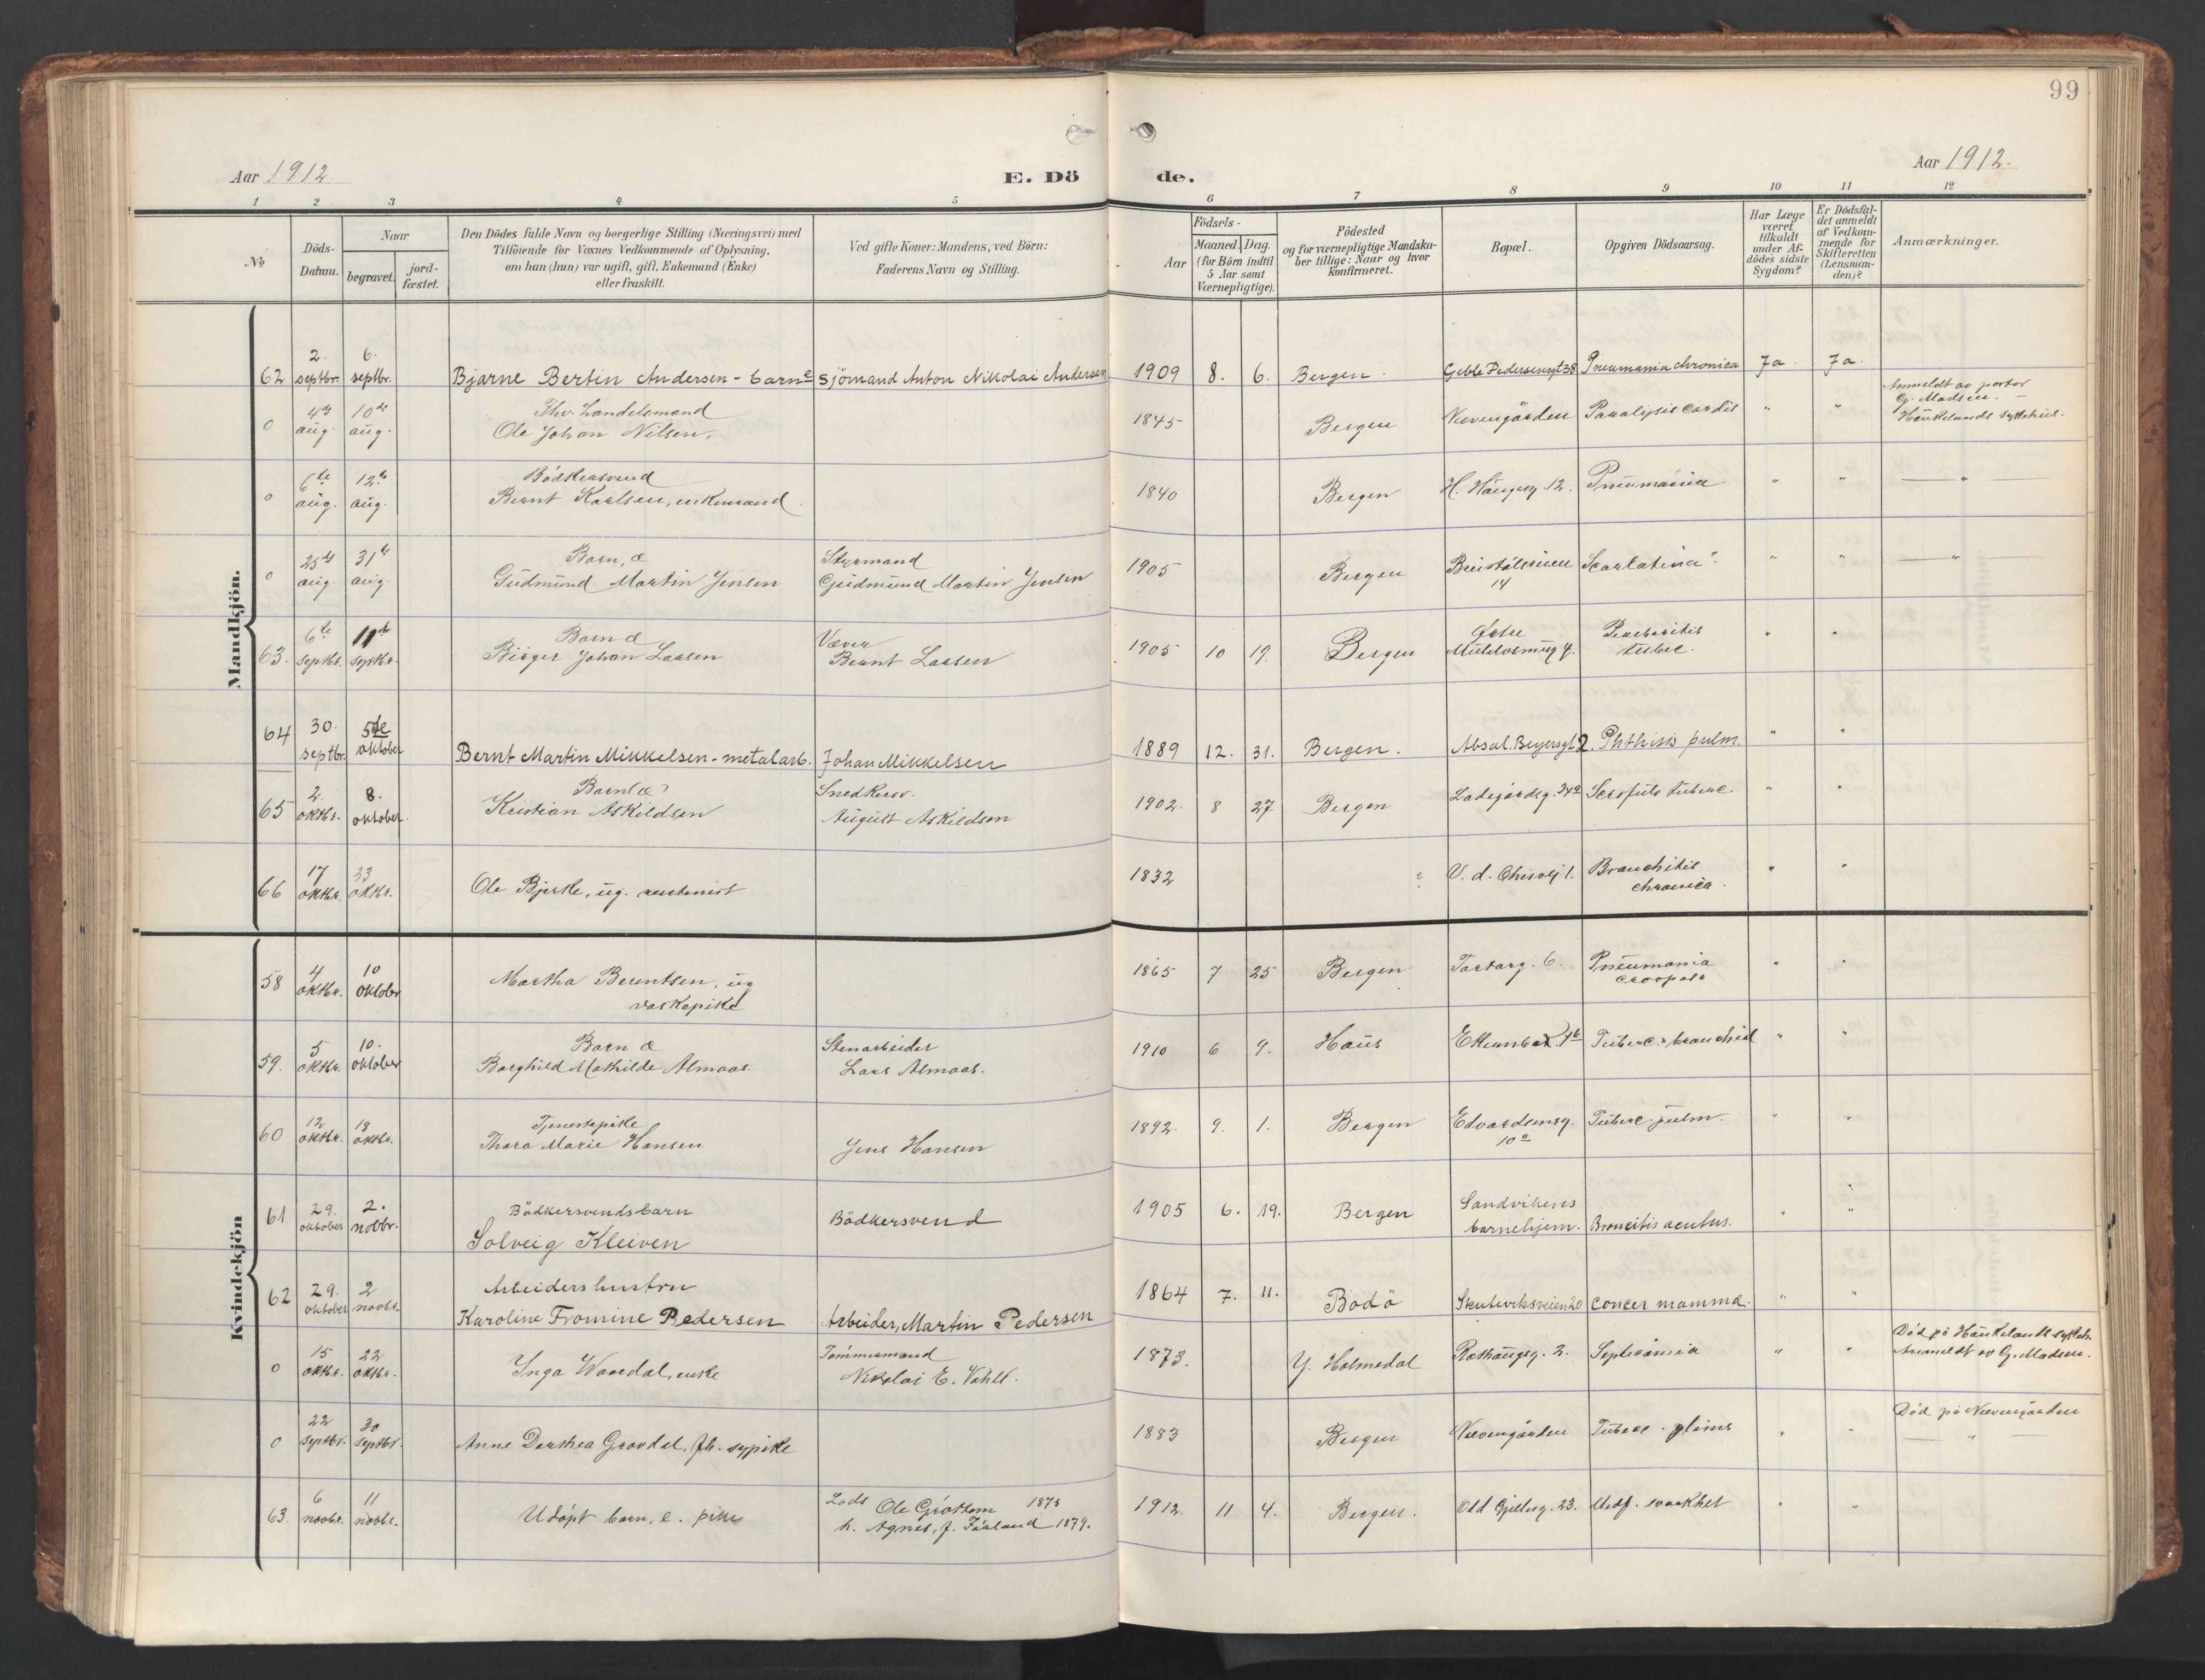 99
Aar 1912.
E. Dö
de.
Aar 1912.
1 2 3 4 5 6 7 8 9 10 11 12
No
Döds-
Datum.
Naar
begravet.
jord-
fæstet.
Den Dödes fulde Navn og borgerlige Stilling (Næringsvei) med
Tilföiende for Voxnes Vedkommende af Oplysning,
om han (hun) var ugift, gift, Enkemand (Enke)
eller fraskilt.
Ved gifte Koner: Mandens, ved Börn:
Faderens Navn og Stilling.
Födsels-
Aar
Maaned. Dag.
(for Börn indtil
5 Aar samt
Værnepligtige).
Födested
og for værnepligtige Mandska-
ber tillige: Naar og hvor
konfirmeret.
Bopæl.
Opgiven Dödsaarsag.
Har Læge
været
tilkaldt
under Af-
dödes sidste
Sygdom?
Er Dödsfal-
det anmeldt
af Vedkom-
mende for
Skifteretten
(Lensman-
den)?
Anmærkninger.
Mandkjön.
62 2. septbr. 6. septbr. Bjarne Bertin Andersen - barn Sjömand Anton Nikolai Andersen 1909 8. 6. Bergen. Geble Pedersensgt 38 Pneumania chronica Ja Ja
0 4de aug. 10de aug. Fhv. handelsmand
Ole Johan Nilsen. 1845 Bergen Nevengården Paralysis cordis " " Anmeldt av pastor
G. Madsen.
Haukelands sykehus.
0 6te aug. 12te aug. Bödkersvend
Bernt Karlsen, enkemand 1840 Bergen H. Haugesg. 12. Pneumania " " "
0 25de aug. 31te aug. Barn, æ
Gudmund Martin Jensen Styrmand
Gudmund Martin Jensen 1905 Bergen 14 Scarlatina " " "
63. 6te septbr. 11te septbr. Barn æ
Birger Johan Larsen Væver
Bernt Larsen 1905 10 19. Bergen Østre tuberc. " "
64 30. septbr. 5de oktober Bernt Martin Mikkelsen - metalarb. Johan Mikkelsen 1889 12. 31. Bergen. Absal. Beyersgt 2. Phthisis pulm. " "
65 2. oktbr. 8. oktober. Barn (æ)
Kristian Askildsen Snedkersv.
August Askildsen 1902. 8 27 Bergen Ladegårdsg. 34a Scrofulo tuberc. " "
66 17 oktbr. 23 oktbr. Ole Bjerke, ug. rentenist 1832 ? V. d. Ohesvej 1. Bronchitis
chronica. " "
Kvindekjön
58 4 oktbr. 10 oktober Martha Berentsen, ug
vaskepike 1865 7 25 Bergen Tartarg. 6. Pneumonia
crooposa " "
59. 5 oktbr. 10. oktober Barn æ
Borghild Mathilde Almaas. Stenarbeider
Lars Almaas. 1910 6 9. Haus Tuberc. bronchid " "
60 12 oktbr. 18 oktbr. Tjenestepike
Thora Marie Hansen Jens Hansen 1892. 9. 1. Bergen Edvardsensg.
10a Tuberc. pulm. " "
61 29. oktober 2. novbr. Bödkersvendsbarn
Solveig Kleiven Bödkersvend 1905 6. 19. Bergen Sandvikens
barnehjem. Broncitis acutus. " "
62 29. oktober 2 novbr. Arbeiders hustru
Karoline Fromine Pedersen Arbeider, Martin Pedersen 1864 7. 11. Bodö Skuteviksveien 20 Concer mamma. " "
0 15 oktbr. 22 oktbr. Inga Waardal, enke Tømmermand
Nikolai E. Vahll. 1873. Y. Holmedal Rothaugsg. 2. Septicämia " " Död på Haukelands sykeh.
Anmeldt av G. Madsen.
0 22 septbr. 30 septbr. Anne Dorthea Grovdal, fh. sypike 1883 Bergen Nevengården Tuberc. " " Död på Nevengården
"
63. 6 novbr. 11 novbr. Udøpt barn, e. pike Lods Ole Grottem 1873
h. Agnes, f. Färland 1879. 1912. 11 4. Bergen. Old Gjellesg. 23. Medf. svakhet " "